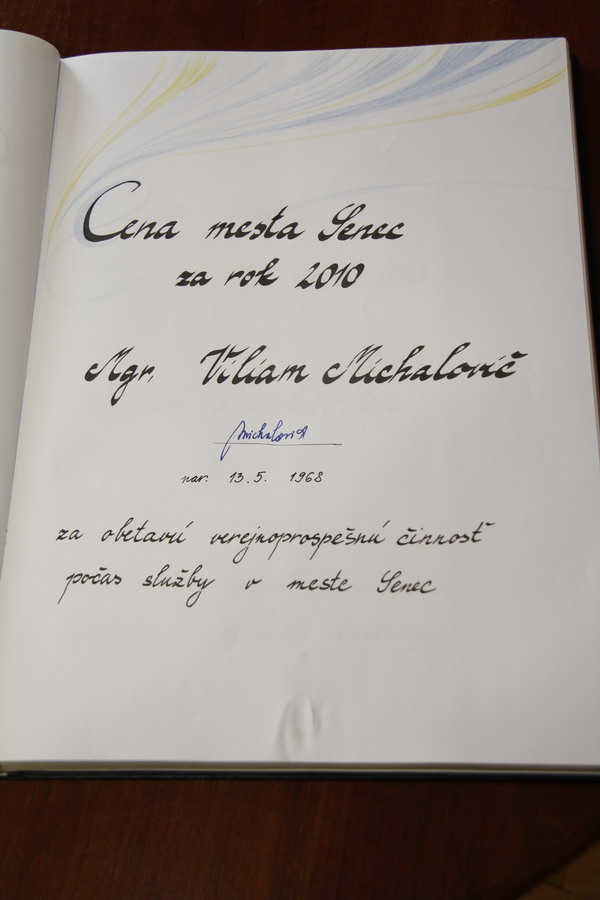 Cena mesta Senec
za rok 2010
Mgr. Viliam Michalovič
Michalovič
nar. 13.5. 1968
za obetavú verejnoprospešnú činnosť
počas služby v meste Senec